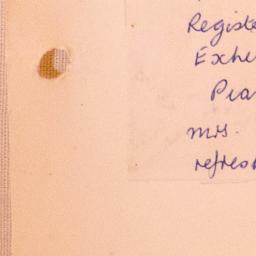 Registe
Exhi
Pia
mrs.
refres